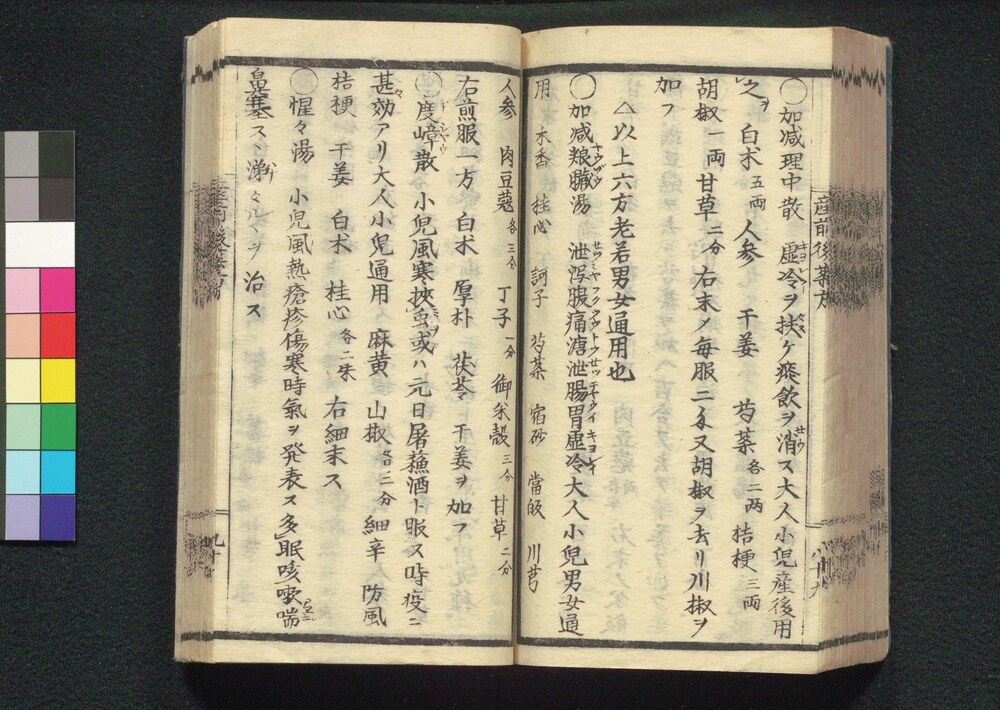 産前後薬方
〇加减理中散 虚冷ヲ扶ケ痰飲ヲ消ス大人小兒産後用
之ヲ 白朮五両 人参 干姜 芍薬各二两 桔梗三両
胡椒一両 甘草二分 右末ノ毎服二匁又胡椒ヲ去リ川椒ヲ
加フ
△以上六方老若男女通用也
〇加减粮臓湯 泄泻腹痛溏泄腸胃虚冷大人小兒男女通
用 木香 桂心 訶子 芍薬 宿砂 當皈 川芎
人参 肉豆蔻各三分 丁子一分 御米殻三分 甘草二分
右煎服一方 白朮 厚朴 茯苓 干姜ヲ加フ
〇度嶂散 小兒風寒挾虫或ハ元日屠蘓酒ト服ス時疫ニ
甚々効アリ大人小兒通用 麻黄 山椒各三分 細辛 防風
桔梗 干姜 白朮 桂心各二朱 右細末ス
〇惺々湯 小兒風熱瘡疹傷寒時氣ヲ発表ス多眠咳嗽喘
鼻塞スヽ涕々タルヲ治ス